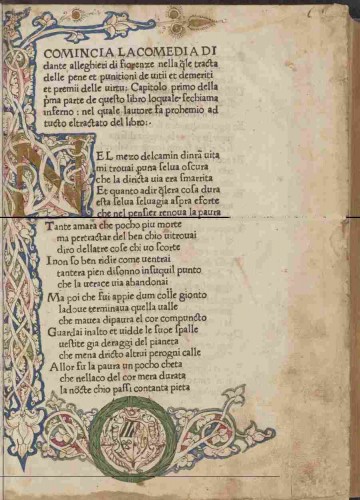 COMINCIA LA COMEDIA DI
dante alleghieri di fiorenze nella q̃le tracta
delle pene et punitioni de uitii et demeriti
et premii delle uirtu: Capitolo primo della
p̃ma parte de questo libro loquale sechiama
inferno: nel quale lautore fa prohemio ad
tucto eltractato del libro:.
EL mezo delcamin dinrã uita
mi trouai puna selua oscura
che la diricta uia era smarrita
Et quanto adir q̃lera cosa dura
esta selua seluagia aspra eforte
che nel pensier renoua la paura
Tante amara che pocho piu morte
ma pertractar del ben chio uitrouai
diro dellatre cose chi uo scorte
I non so ben ridir come uentrai
tantera pien disonno insuquil punto
che la uerace uia abandonai
Ma poi che fui appie dum colle gionto
ladoue terminaua quella ualle
che mauea dipaura el cor compuncto
Guardai inalto et uidde le suoe spalle
uestite gia deraggi del pianeta
che mena dricto altrui perogni calle
Allor fu la paura un pocho cheta
che nellaco del cor mera durata
la nocte chio passi contanta pieta